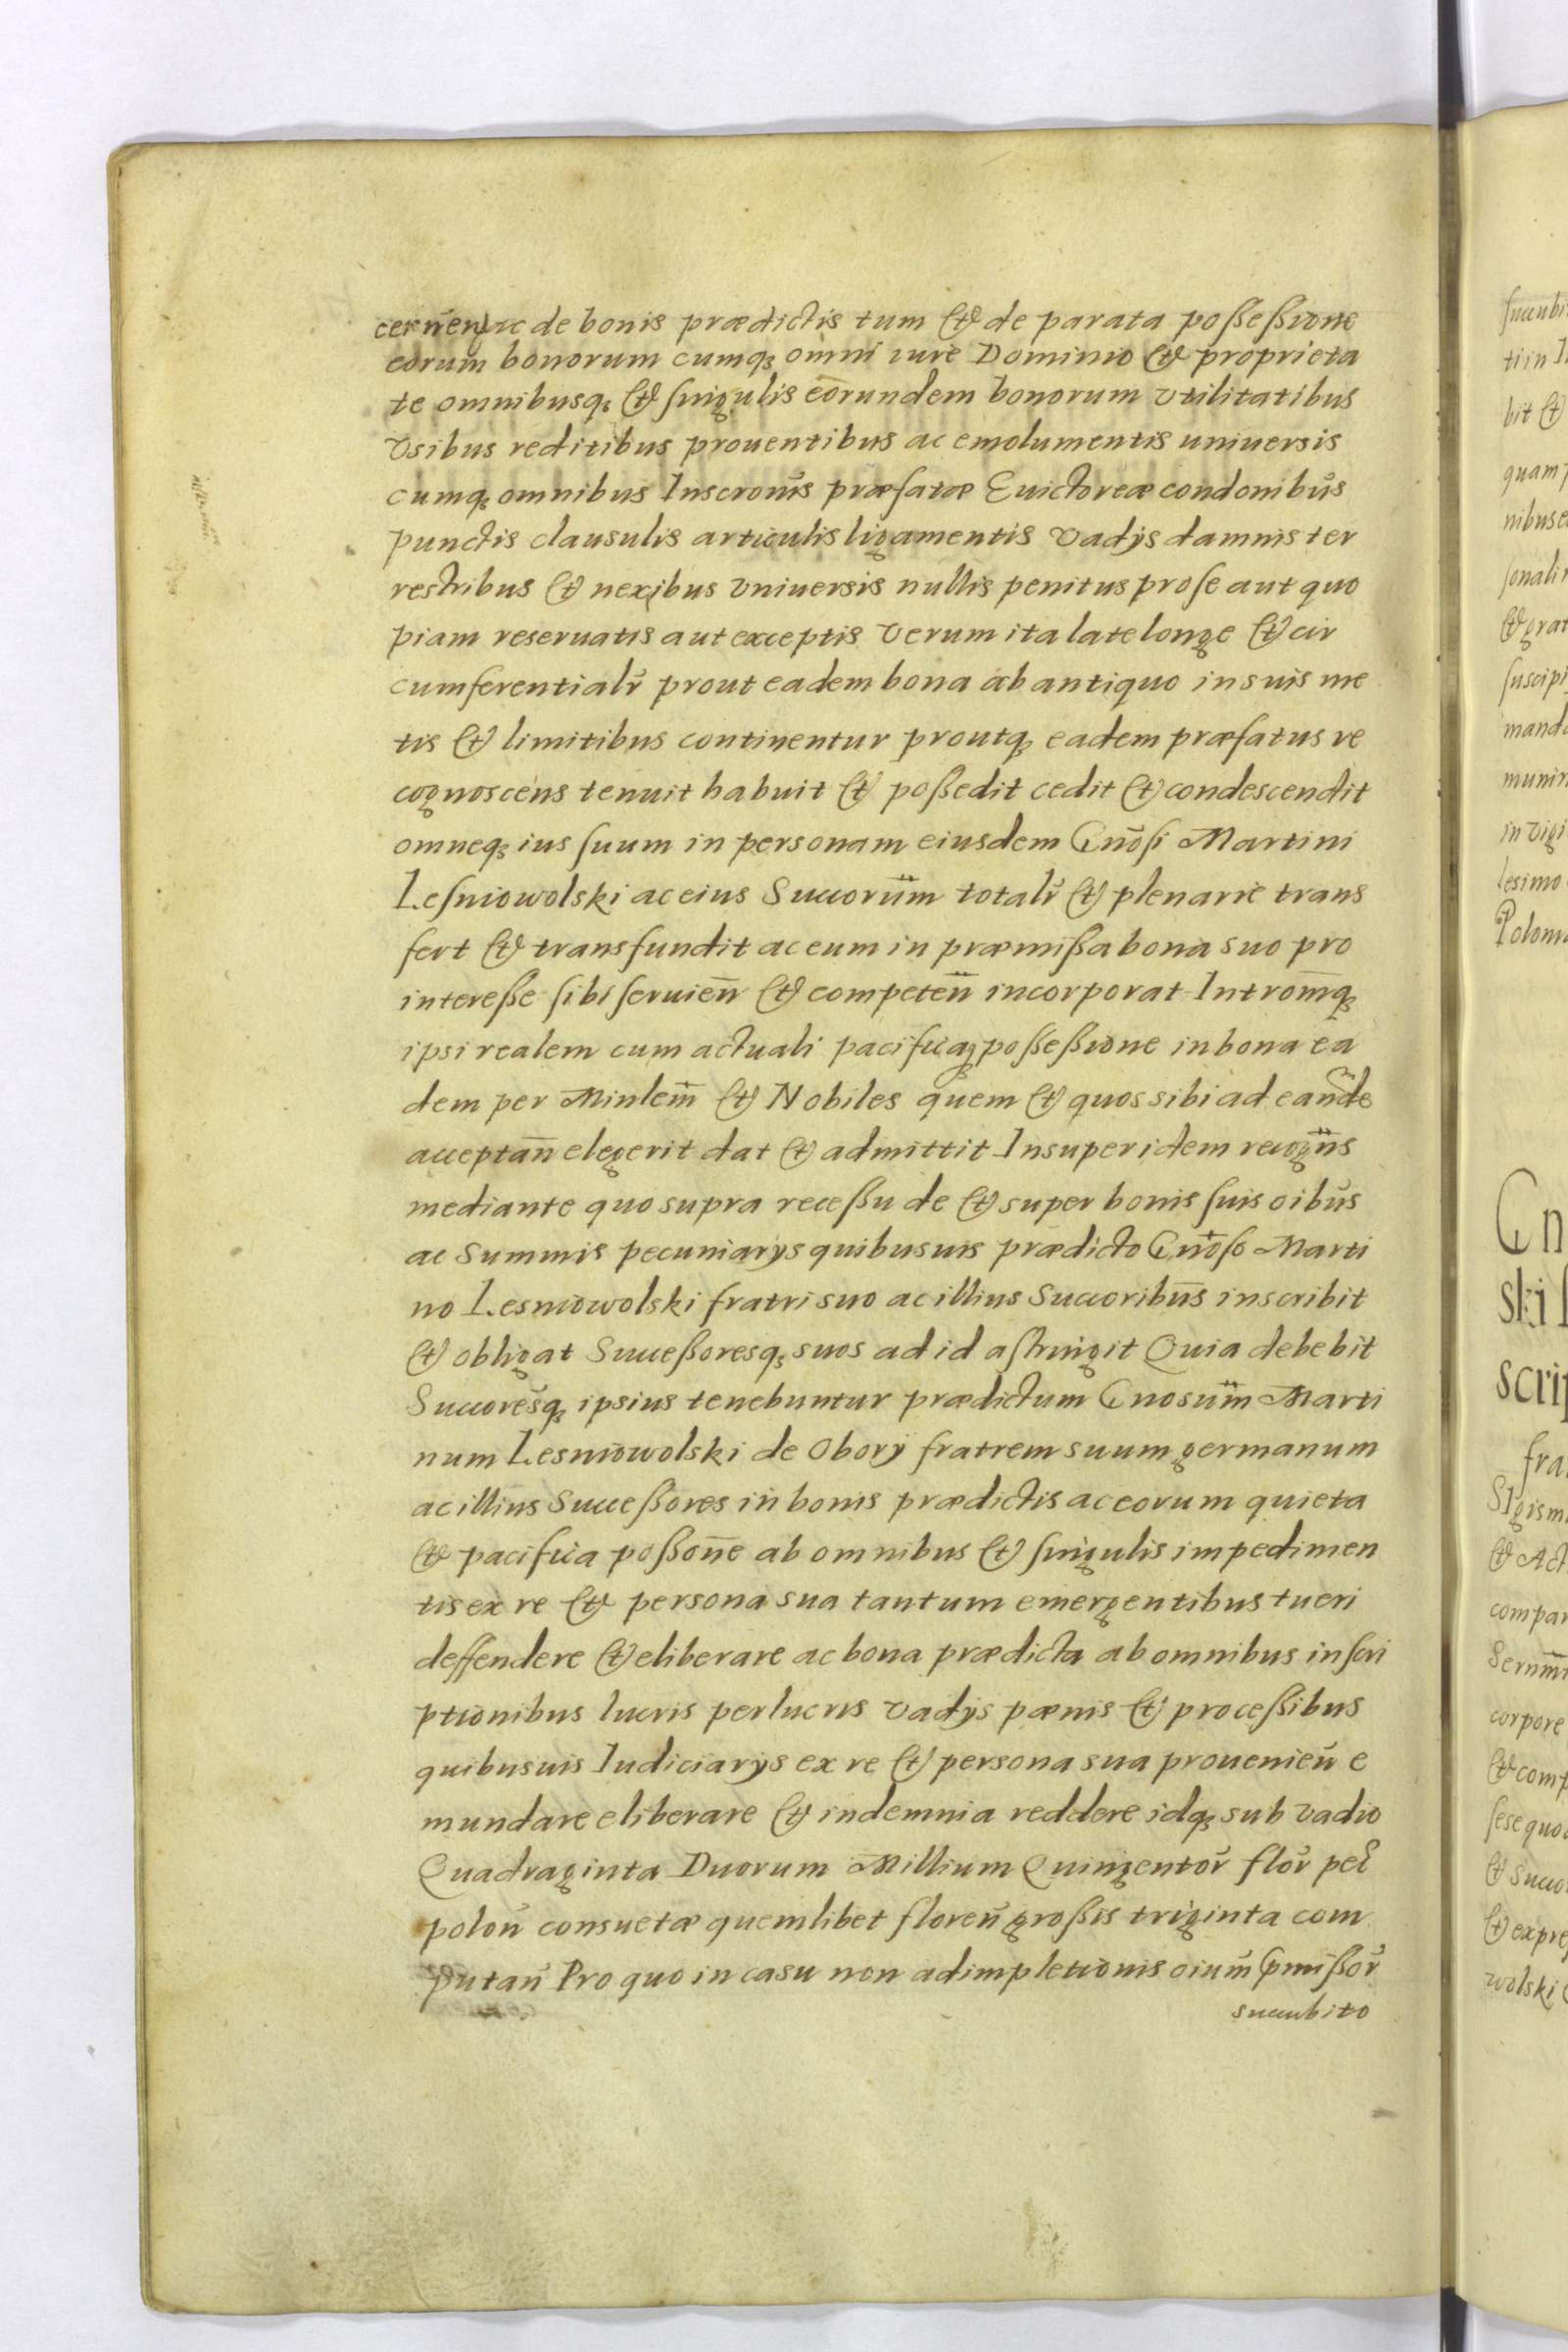 cernen ac de bonis prædictis tum & de parata poßeßione
eorum bonorum cumq; omni iure Dominio & proprieta
te omnibusq; & singulis eorundem bonorum vtilitatibus
vsibus reditibus prouentibus ac emolumentis uniuersis
cumq; omnibus Inscronūs præfatæ Euictoreæ condonibūs
punctis clausulis articulis ligamentis vadijs damnis ter
restribus & nexibus vniuersis nullis penitus pro se aut quo
piam reseruatis aut exceptis verum ita late longe & cir
cumferentialr̄ prout eadem bona ab antiquo in suis me
tis & limitibus continentur proutq; eadem præfatus re
cognoscens tenuit habuit & poßedit cedit & condescendit
omneq; ius suum in personam eiusdem Gnōsi Martini
Lesniowolski ac eius Succorūm totalr̄ & plenarie trans
fert & transfundit ac eum in præmißa bona suo pro
intereße sibi seruien̄ & competen̄ incorporat Introm̄q;
ipsi realem cum actuali pacificaq; poßeßione in bona ea
dem per Minlem̄ & Nobiles quem & quos sibi ad eand̄e
acceptan̄ elegerit dat & admittit Insuper idem recogn̄s
mediante quo supra receßu de & super bonis suis oibūs
ac Summis pecuniarijs quibusuis prædicto Gnōso Marti
no Lesniowolski fratri suo ac illius Succoribūs inscribit
& obligat Succeßoresq; suos ad id astringit Quia debebit
Succorēsq; ipsius tenebuntur prædictum Gnosūm Marti
num Lesniowolski de Obory fratrem suum germanum
ac illius Succeßores in bonis prædictis ac eorum quieta
& pacifica poßon̄e ab omnibus & singulis impedimen
tis ex re & persona sua tantum emergentibus tueri
deffendere & eliberare ac bona prædicta ab omnibus inscri
ptionibus lucris perlucris vadijs pænis & proceßibus
quibusuis Iudiciarijs ex re & persona sua prouenien̄ e
mundare eliberare & indemnia reddere idq; sub vadio
Quadraginta Duorum Millium Quingentor̄ flor̄ pec̄
polon̄ consuetæ quemlibet floren̄ großis triginta com
putan̄ Pro quo in casu non adimpletionis oium̄ p̄mißor̄
succubito
succubi
ti in
bit &
quam
nibus
sonali
& grat
suscipi
mand
munin
in vigi
lesimo
Poloni
Gn
ski
scrip
fra
SIgism
& Act
compar
Serenm̄
corpore
& comp
sese quo
& Succo
& expre
wolski